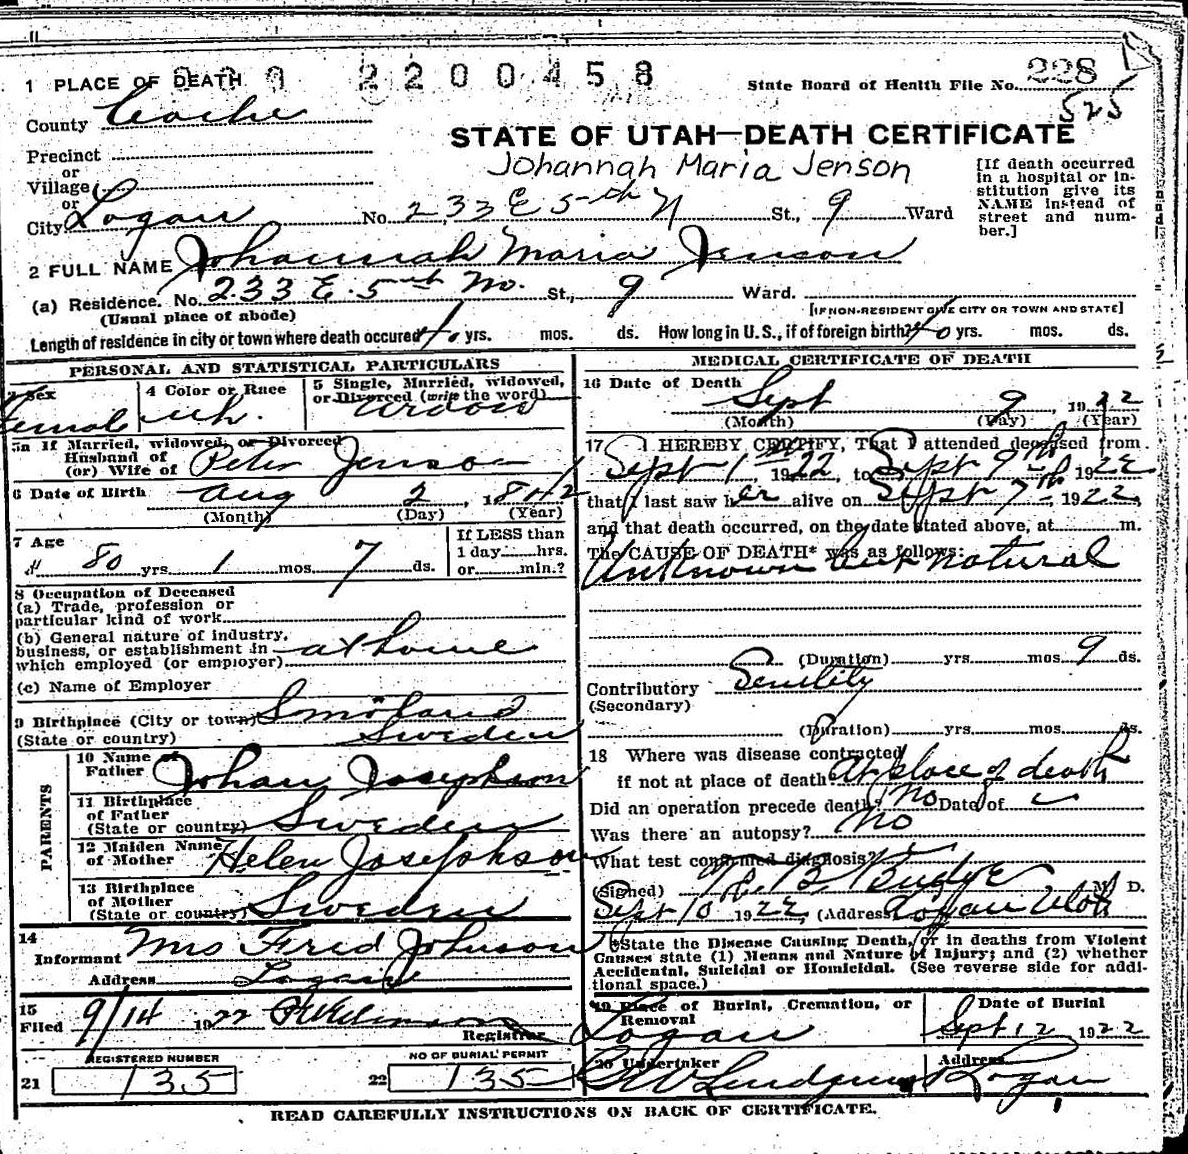 1 PLACE OF DEATH 2200458
State Board of Health File No. 228
525
County Cache
STATE OF UTAH—DEATH CERTIFICATE
Precinct
or
Village
or
Johannah Maria Jenson
[If death occurred in a hospital or institution give its NAME instead of street and number.]
City Logan No. 233 E 5th N St., 9 Ward
2 FULL NAME Johannah Maria Jenson
(a) Residence. No. 233 E. 5th No. St., 9 Ward.
(Usual place of abode) [IF NON-RESIDENT GIVE CITY OR TOWN AND STATE]
Length of residence in city or town where death occured 40 yrs. mos. ds. How long in U. S., if of foreign birth? 40 yrs. mos. ds.
PERSONAL AND STATISTICAL PARTICULARS
3 Sex Female
4 Color or Race Wh.
5 Single, Married, widowed, or Divorced (write the word) Widow
5a If Married, widowed, or Divorced
Husband of
(or) Wife of Peter Jenson
6 Date of Birth Aug 2, 1842
(Month) (Day) (Year)
7 Age 80 yrs. 1 mos. 7 ds.
If LESS than
1 day hrs.
or min.?
8 Occupation of Deceased
(a) Trade, profession or
particular kind of work
(b) General nature of industry,
business, or establishment in
which employed (or employer) at home
(c) Name of Employer
9 Birthplace (City or town) Smöland
(State or country) Sweden
PARENTS
10 Name of
Father Johan Josephson
11 Birthplace
of Father
(State or country) Sweden
12 Maiden Name
of Mother Helen Josephson
13 Birthplace
of Mother
(State or country) Sweden
14
Informant Mrs Fred Johnson
Address Logan
15
Filed 9/14 1922
Registrar
REGISTERED NUMBER
21 135
NO OF BURIAL PERMIT
22 135
MEDICAL CERTIFICATE OF DEATH
16 Date of Death Sept 9, 1922
(Month) (Day) (Year)
17 I HEREBY CERTIFY, That I attended deceased from
Sept 1st 1922, to Sept 9th 1922
that I last saw her alive on Sept 7th, 1922,
and that death occurred, on the date stated above, at m.
The CAUSE OF DEATH* was as follows:
Unknown but natural
(Duration) yrs. mos. 9 ds.
Contributory Senility
(Secondary)
(Duration) yrs. mos. ds.
18 Where was disease contracted
if not at place of death? At place of death
Did an operation precede death? No Date of
Was there an autopsy? No
What test confirmed diagnosis?
(Signed) Budge M. D.
Sept 10 1922, (Address) Logan Utah
*State the Disease Causing Death, or in deaths from Violent
Causes state (1) Means and Nature of Injury; and (2) whether
Accidental, Suicidal or Homicidal. (See reverse side for addi-
tional space.)
19 Place of Burial, Cremation, or
Removal
Logan
Date of Burial
Sept 12 1922
20 Undertaker
Lindquist
Address
Logan
READ CAREFULLY INSTRUCTIONS ON BACK OF CERTIFICATE.